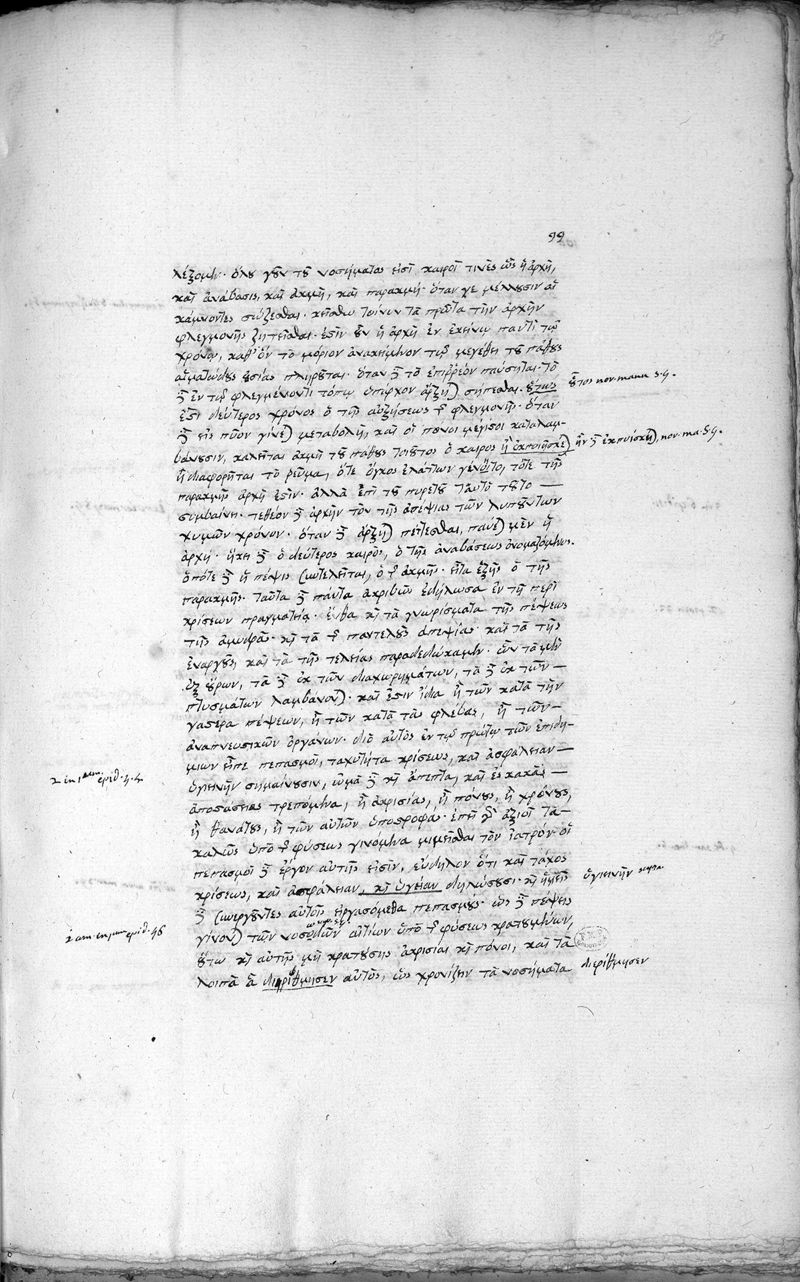 99
λέξομεν· ὅλου γοῦν τοῦ νοσήματος εἰσὶ καιροί τινες ὡς ἡ ἀρχὴ,
καὶ ἀνάβασις, καὶ ἀκμὴ, καὶ παρακμή· ὅταν γε μέλλουσιν οἱ
κάμνοντες σώζεσθαι· κείσθω τοίνυν τὰ πρῶτα τὴν ἀρχὴν
φλεγμονῆς ζητεῖσθαι· ἔστιν οὖν ἡ ἀρχὴ ἐν ἐκείνῳ παντὶ τῷ
χρόνῳ, καθ' ὃν τὸ μόριον ἀνακείμενον τῷ μεγέθει τοῦ πάθους
αἱματώδους οὐσίας πληροῦται· ὅταν δὲ τὸ ἐπιῤῥέον παύσηται· τὸ
δὲ ἐν τῷ φλεγμαίνοντι τόπῳ ὑπάρχον ἄρξηται σήπεσθαι· οὕτως οὗτος nov. manu 5. 9.
ἐστὶ δεύτερος χρόνος ὁ τῆς αὐξήσεως τῆς φλεγμονῆς· ὅταν
δὲ εἰς πῦον γίνεται μεταβολὴ, καὶ οἱ πόνοι μέγιστοι καταλαμ-
βάνουσιν, καλεῖται ἀκμὴ τοῦ πάθους τοιοῦτος ὁ καιρὸς
ἢ διαφορῆται τὸ ῥεῦμα, ὅτε ὄγκος ἐλάττων γένοιτο, τότε τῆς
παρακμῆς ἀρχή ἐστιν· ἀλλὰ ἐπὶ τοῦ πυρετοῦ ταὐτὸ τοῦτο
συμβαίνει· τεθέον δὲ ἀρχὴν τὸν τῆς ἀπεψίας τῶν λυπούντων
χυμῶν χρόνον· ὅταν δὲ ἄρξηται πέττεσθαι, παύεται μὲν ἡ
ἀρχὴ· ἥκει δὲ ὁ δεύτερος καιρὸς, ὁ τῆς ἀναβάσεως ὀνομαζόμενος.
ὁπότε δὲ ἡ πέψις συντελεῖται, ὁ τῆς ἀκμῆς· εἶτα ἑξῆς ὁ τῆς
παρακμῆς· ταῦτα δὲ πάντα ἀκριβῶς ἐδήλωσα ἐν τῇ περὶ
κρίσεων πραγματείᾳ· ἔνθα καὶ τὰ γνωρίσματα τῆς πέψεως
τῆς ἀμυδρᾶς· καὶ τὰ τῆς παντελοῦς ἀπεψίας· καὶ τὰ τῆς
ἐναργοῦς, καὶ τὰ τῆς τελείας παραδεδώκαμεν· ὧν τὰ μὲν
ἐξ οὔρων, τὰ δὲ ἐκ τῶν διαχωρημάτων, τὰ δὲ ἐκ τῶν
πτυσμάτων λαμβάνονται· καὶ ἔστιν ἴδια ἢ τῶν κατὰ τὴν
γαστέρα πέψεων, ἢ τῶν κατὰ τὰς φλέβας, ἢ τῶν
ἀναπνευστικῶν ὀργάνων· διὸ αὐτὸς ἐν τῷ πρώτῳ τῶν ἐπιδη-
μιῶν εἶπε πεπασμοὶ, ταχυτῆτα κρίσεως, καὶ ἀσφάλειαν
ὑγιεινὴν σημαίνουσιν, ὠμὰ δὲ καὶ ἄπεπτα, καὶ ἐς κακὰς
ἀποστάσιας τρεπόμενα, ἢ ἀκρισίας, ἢ πόνους, ἢ χρόνους,
ἢ θανάτους, ἢ τῶν αὐτῶν ὑποστροφάς· ἐπεὶ γὰρ ἀξιοῖ τὰ
καλῶς ὑπὸ τῆς φύσεως γινόμενα μιμεῖσθαι τὸν ἰατρὸν· οἱ
πεπασμοὶ δὲ ἔργον αὐτῆς εἰσιν, εὔδηλον ὅτι καὶ τάχος
κρίσεως, καὶ ἀσφάλειαν, καὶ ὑγίειαν δηλώσουσι· καὶ ἡμεῖς ὑγιεινὴν supra
δὲ συνεργοῦντες αὐτοῖς ἐργασόμεθα πεπασμούς· ὡς δὲ πέψεις
γίνονται τῶν νοσωδῶν αἰτίων ὑπὸ τῆς φύσεως κρατουμένων,
οὕτω καὶ αὐτῆς μὴ κρατούσης ἀκρισίαι καὶ πόνοι, καὶ τὰ
λοιπὰ ἃ διηρίθμησεν αὐτὸς, ὡς χρονίζειν τὰ νοσήματα διερίθμησεν